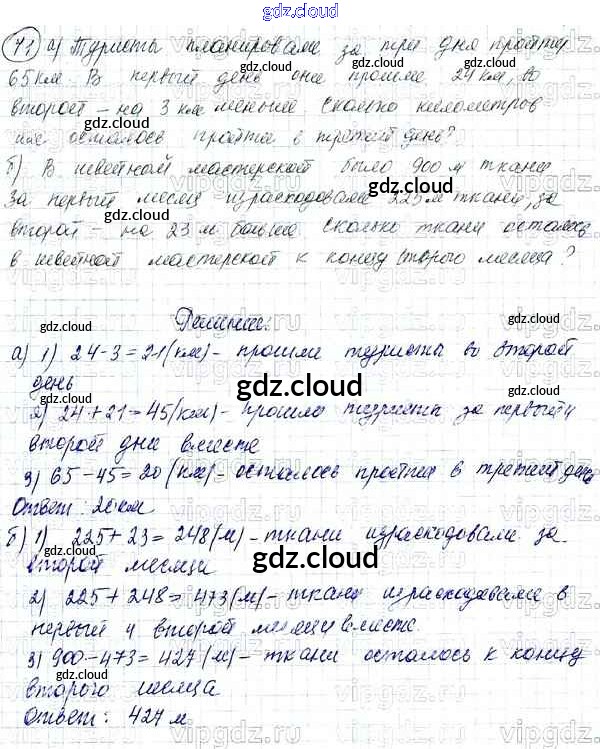 gdz.cloud
71 а) Туристы планировали за три дня пройти
65 км. В первый день они прошли 24 км, во
второй – на 3 км меньше. Сколько километров
им осталось пройти в третий день?
б) В швейной мастерской было 900 м ткани.
За первый месяц израсходовали 225 м ткани, за
второй – на 23 м больше. Сколько ткани осталось
в швейной мастерской к концу второго месяца?
Решение:
а) 1) 24-3=21(км) - прошли туристы во второй
день
2) 24+21=45(км) - прошли туристы за первый и
второй дни вместе
3) 65-45=20(км) - осталось пройти в третий день
Ответ: 20 км
б) 1) 225+23=248(м) - ткани израсходовали за
второй месяц
2) 225+248=473(м) - ткани израсходовали в
первый и второй месяцы вместе.
3) 900-473=427(м) - ткани осталось к концу
второго месяца
Ответ: 427 м